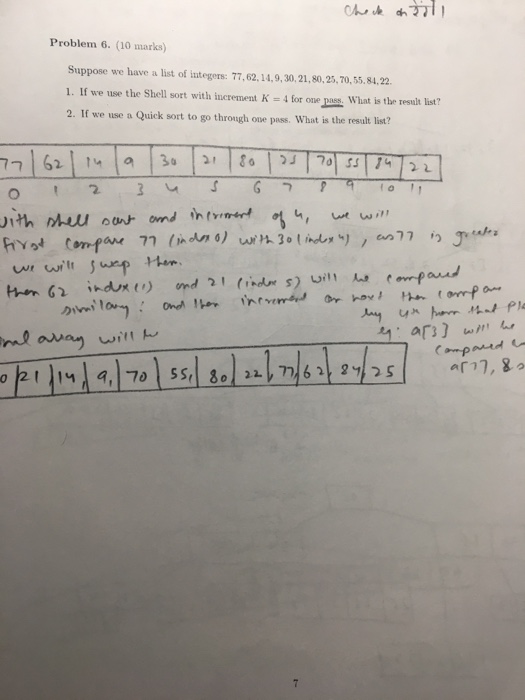 Check on
Problem 6. (10 marks)
Suppose we have a list of integers: 77, 62, 14, 9, 30, 21, 80, 25, 70, 55, 84, 22.
1. If we use the Shell sort with increment K = 4 for one pass. What is the result list?
2. If we use a Quick sort to go through one pass. What is the result list?
77 | 62 | 14 | 9 | 30 | 21 | 80 | 25 | 70 | 55 | 84 | 22
0 1 2 3 4 5 6 7 8 9 10 11
with shell sort and increment of 4, we will
first compare 77 (index 0) with 30 (index 4), as 77 is greater
we will swap them.
then 62 index (1) and 21 (index 5) will be compared
similary: and then increment or next then compare
by 4th from that pla
eg. a[3] will be
compared
a[7], &so
nal array will be
0 | 21 | 14, | 9, | 70 | 55, | 80 | 22 | 77 | 62 | 84 | 25
7